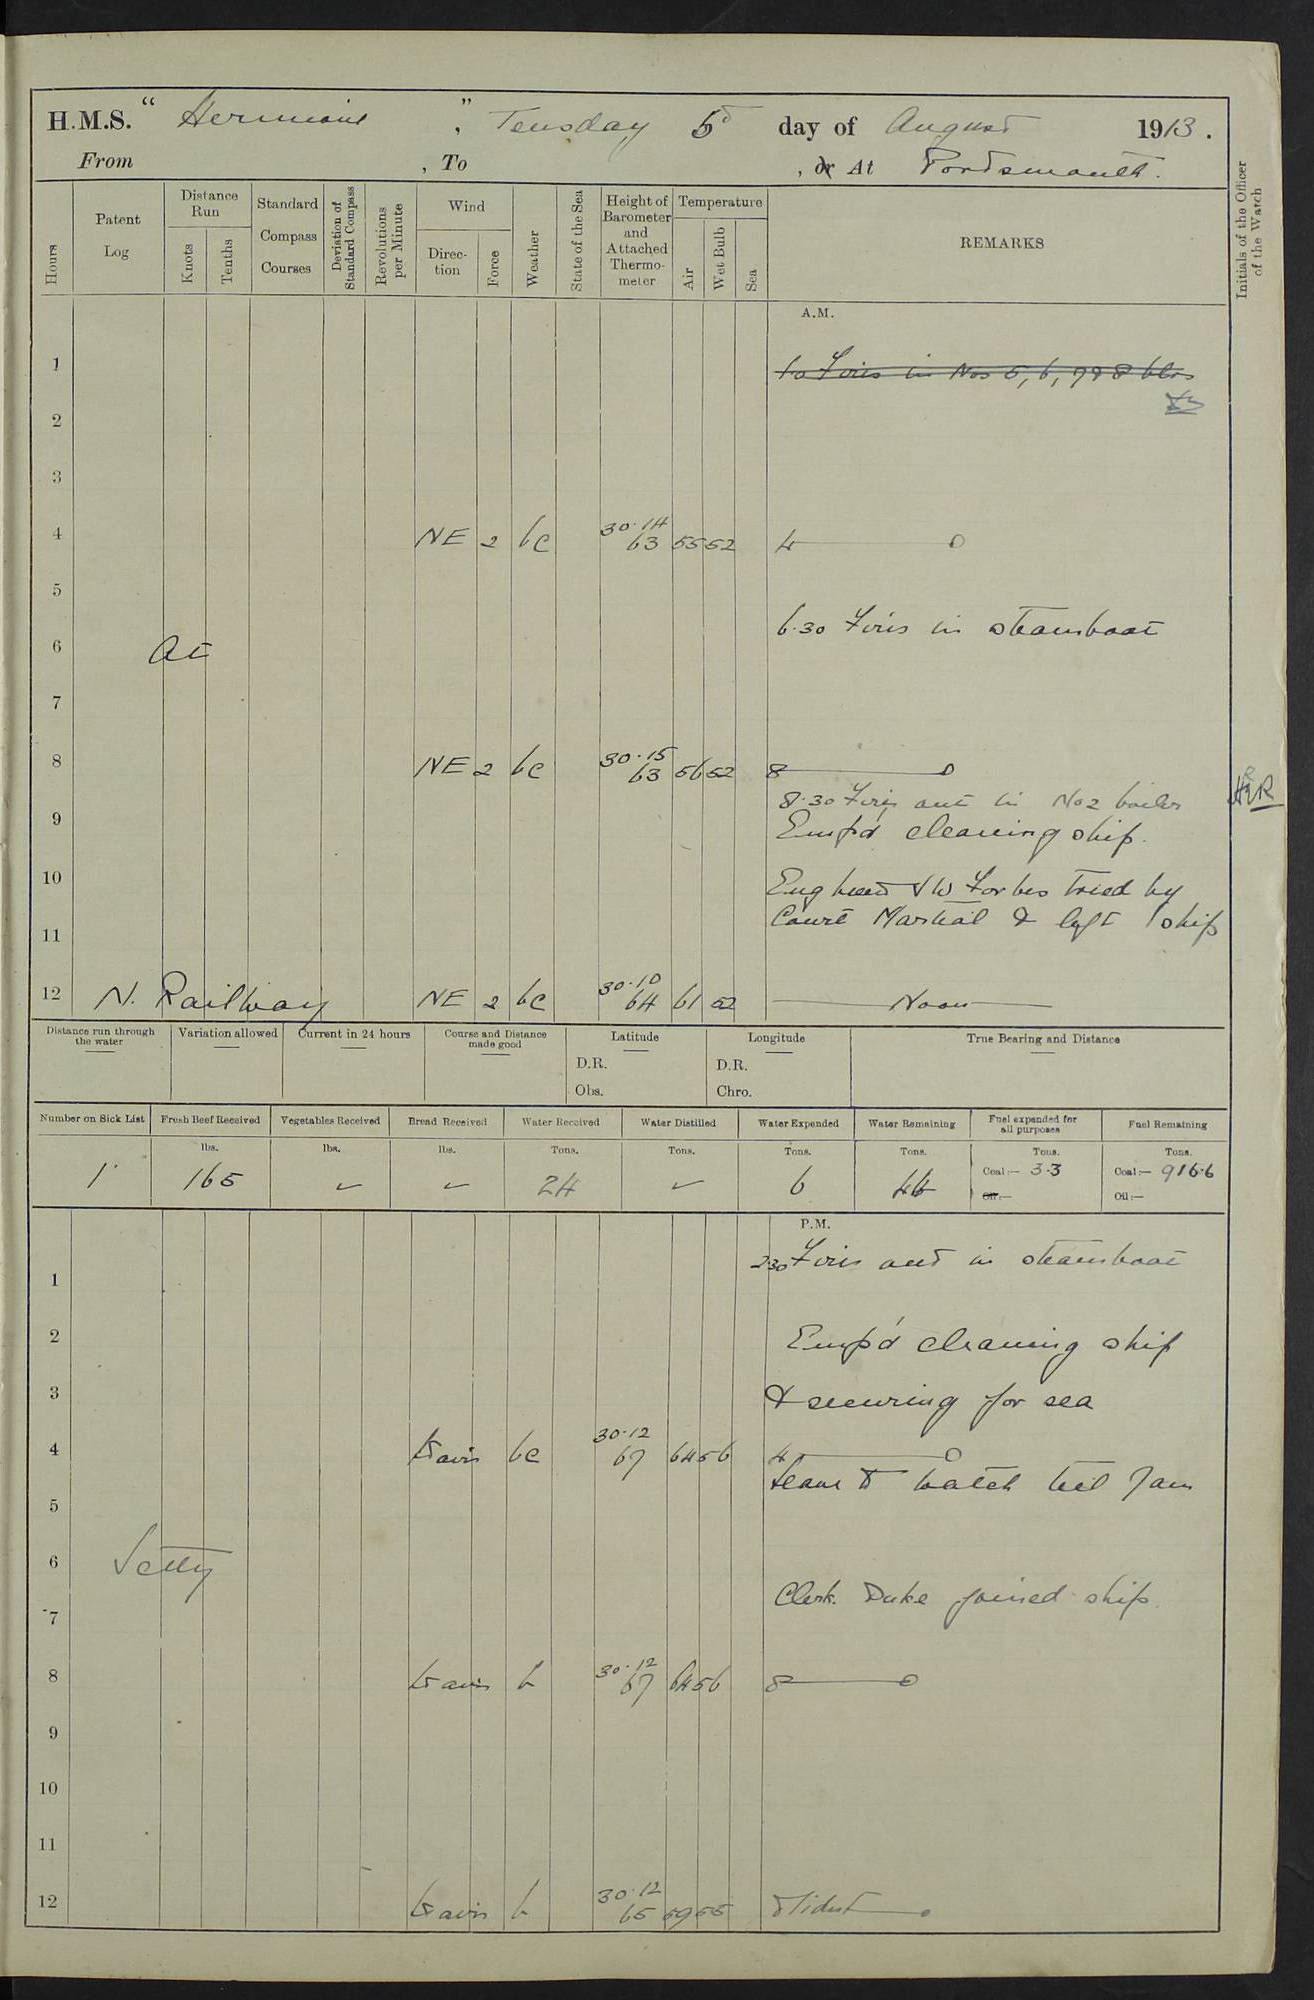 H.M.S. “ Hermione ” , Tuesday 5th day of August 1913 .
From , To , or At Portsmouth.
Hours
Patent Log
Distance Run
Knots
Tenths
Standard Compass Courses
Deviation of Standard Compass
Revolutions per Minute
Wind
Direction
Force
Weather
State of the Sea
Height of Barometer and Attached Thermometer
Temperature
Air
Wet Bulb
Sea
REMARKS
Initials of the Officer of the Watch
A.M.
1 Fires in Nos 5, 6, 7 & 8 blrs
2
3
4 NE 2 bc 30·14 63 55 52 4
5
6.30 Fires in steamboat
6 At
7
8 NE 2 bc 30·15 63 56 52 8
8.30 Fires out in No 2 boiler
9 Emp'd cleaning ship.
10 Forbes tried by
Court Martial & left ship
11
12 N. Railway NE 2 bc 30·10 64 61 52 Noon
Distance run through the water
Variation allowed
Current in 24 hours
Course and Distance made good
Latitude
D.R.
Obs.
Longitude
D.R.
Chro.
True Bearing and Distance
Number on Sick List
Fresh Beef Received
Vegetables Received
Bread Received
Water Received
Water Distilled
Water Expended
Water Remaining
Fuel expended for all purposes
Fuel Remaining
lbs. lbs. lbs. Tons. Tons. Tons. Tons. Tons. Tons.
1 165 24 6 46 Coal:— 3·3 Coal:— 916·6
Oil:— Oil:—
P.M.
2.30 Fires out in steamboat
1
2 Emp'd cleaning ship
3 & securing for sea
4 bc 30·12 67 64 56 4
Leave to watch till 7am
5
6 Jetty
Clerk Duke joined ship.
7
8 b 30·12 67 64 56 8
9
10
11
12 b 30·12 65 59 55 Midnt